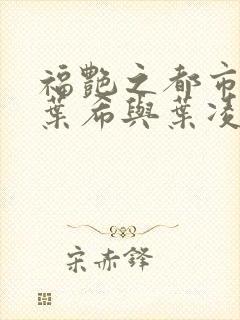 福艷之都市
葉希與葉凌
宋赤鋒